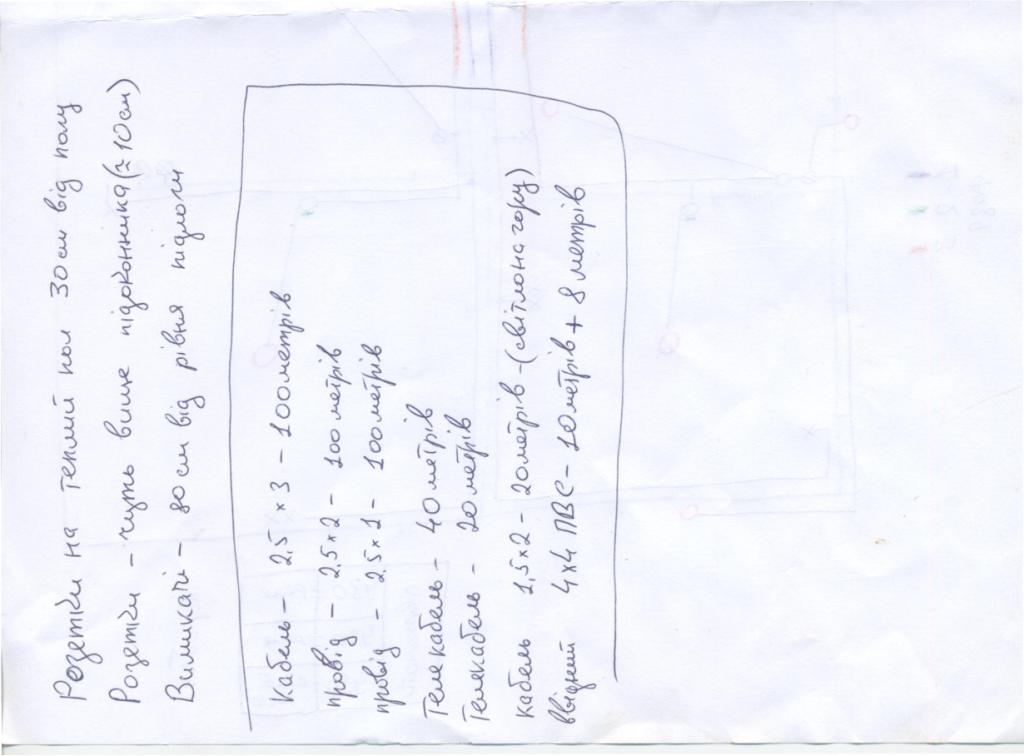 Розетки на теплий пол 30см від полу
Розетки - чуть вище підоконника (≈10см)
Вимикачі - 80см від рівня підлоги
Кабель - 2,5 × 3 - 100 метрів
провід - 2.5×2 - 100 метрів
провід - 2.5×1 - 100 метрів
Телекабель - 40 метрів
Телекабель - 20 метрів
кабель 1,5×2 - 20 метрів - (світло на гору)
ввідний 4×4 ПВС - 10 метрів + 8 метрів